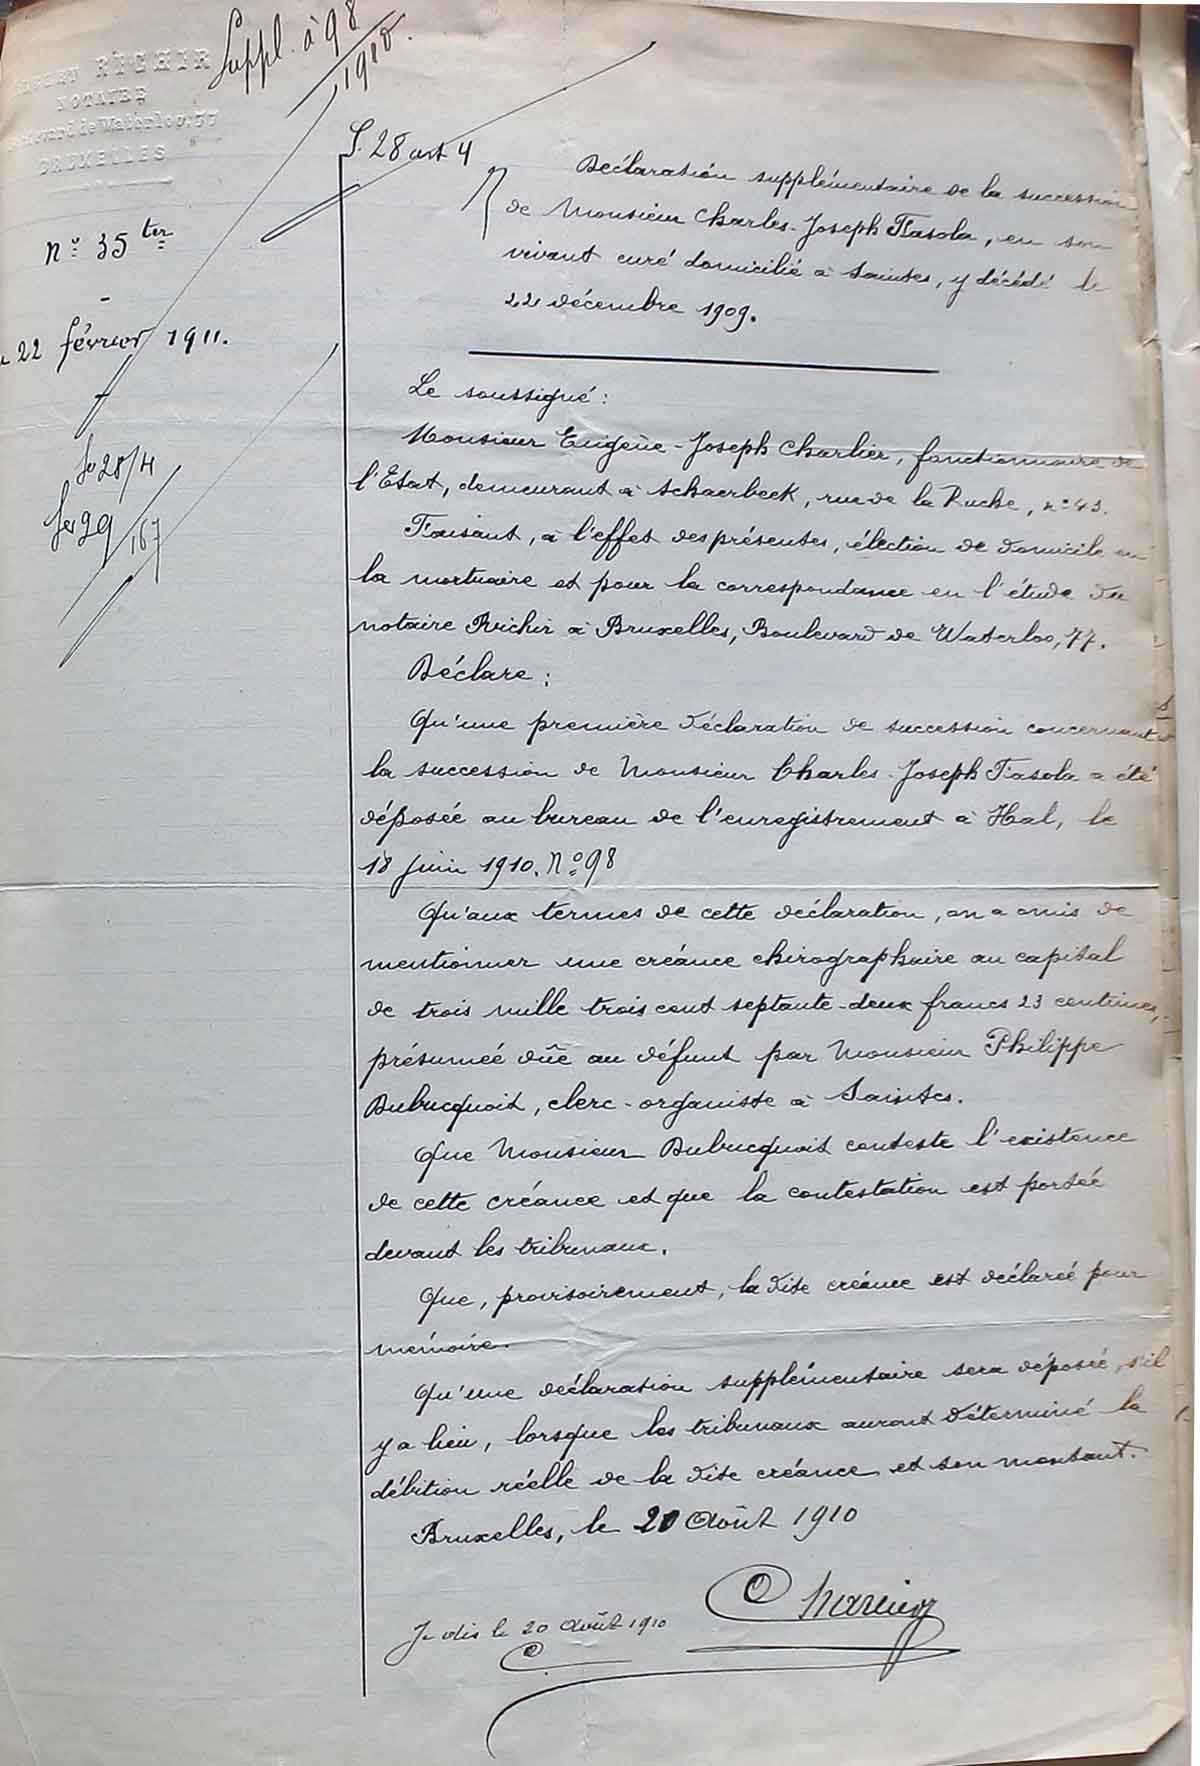 Suppl. à 98
1910.
RICHIR
NOTAIRE
Boulevard de Waterloo, 77
BRUXELLES
S. 28 art 4
N° 35 ter
22 février 1911.
28/4
29/167
Déclaration supplémentaire de la succession
de Monsieur Charles-Joseph Fiasola, en son
vivant curé domicilié à Saintes, y décédé le
22 décembre 1909.
Le soussigné :
Monsieur Eugène-Joseph Charlier, fonctionnaire de
l'Etat, demeurant à Schaerbeek, rue de la Ruche, n° 43.
Faisant, à l'effet des présentes, élection de domicile en
la mortuaire et pour la correspondance en l'étude du
notaire Richir à Bruxelles, Boulevard de Waterloo, 77.
Déclare :
Qu'une première déclaration de succession concernant
la succession de Monsieur Charles-Joseph Fiasola a été
déposée au bureau de l'enregistrement à Hal, le
18 juin 1910. N° 98
Qu'aux termes de cette déclaration, on a omis de
mentionner une créance chirographaire au capital
de trois mille trois cent septante-deux francs 23 centimes,
présumée dûe au défunt par Monsieur Philippe
Dubucquoit, clerc-organiste à Saintes.
Que Monsieur Dubucquoit conteste l'existence
de cette créance et que la contestation est portée
devant les tribunaux.
Que, provisoirement, la dite créance est déclarée pour
mémoire.
Qu'une déclaration supplémentaire sera déposée, s'il
y a lieu, lorsque les tribunaux auront déterminé la
débition réelle de la dite créance et son montant.
Bruxelles, le 20 Août 1910
Charlier
Je dis le 20 Août 1910
C.